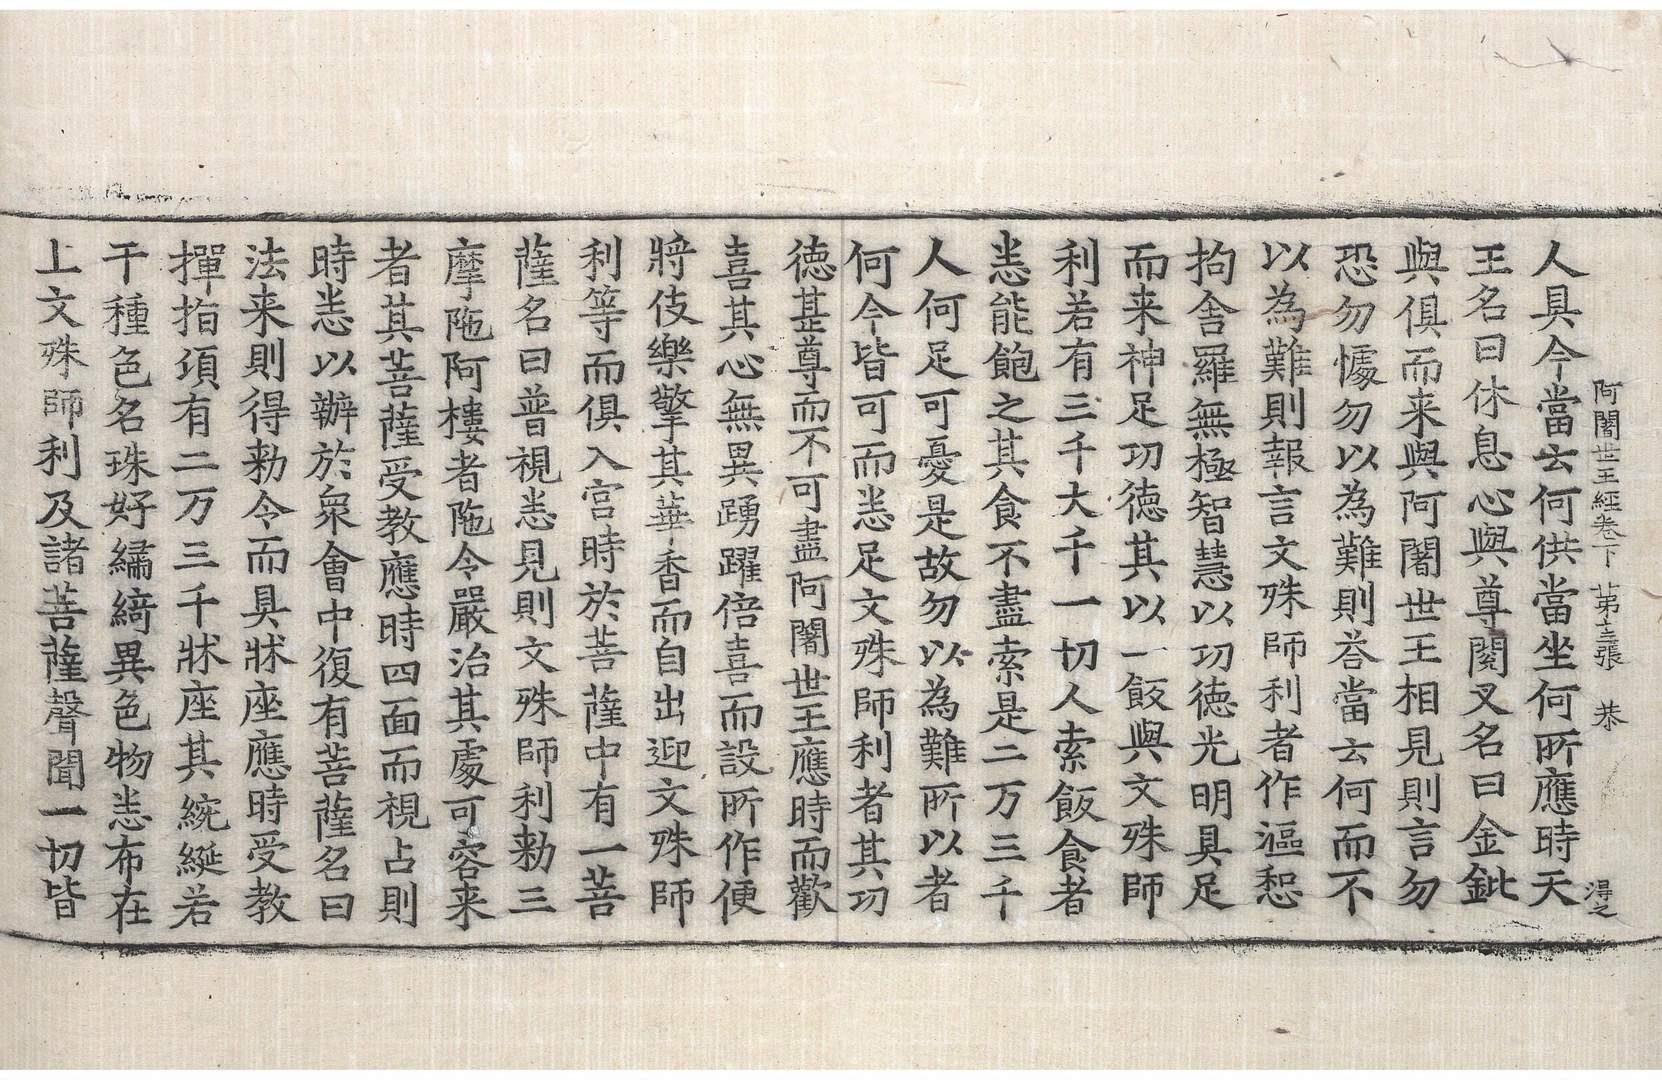 阿闍世王經卷下 苐十三張 恭 淂之
人具今當云何供當坐何所應時天
王名曰休息心與尊閱叉名曰金鈚
與俱而来與阿闍世王相見則言勿
恐勿懅勿以為難則荅當云何而不
以為難則報言文殊師利者作漚惒
拘舍羅無極智慧以功徳光明具足
而来神足功徳其以一飯與文殊師
利若有三千大千一切人索飯食者
悉能飽之其食不盡索是二万三千
人何足可憂是故勿以為難所以者
何今皆可而悉足文殊師利者其功
徳甚尊而不可盡阿闍世王應時而歡
喜其心無異踴躍倍喜而設所作便
將伎樂擎其華香而自出迎文殊師
利等而俱入宫時於菩薩中有一菩
薩名曰普視悉見則文殊師利勑三
摩陁阿樓者陁令嚴治其處可容来
者其菩薩受教應時四面而視占則
時悉以辦於衆會中復有菩薩名曰
法来則得勑令而具牀座應時受教
揮指頃有二万三千牀座其綩綖若
干種色名珠好繡綺異色物悉布在
上文殊師利及諸菩薩聲聞一切皆